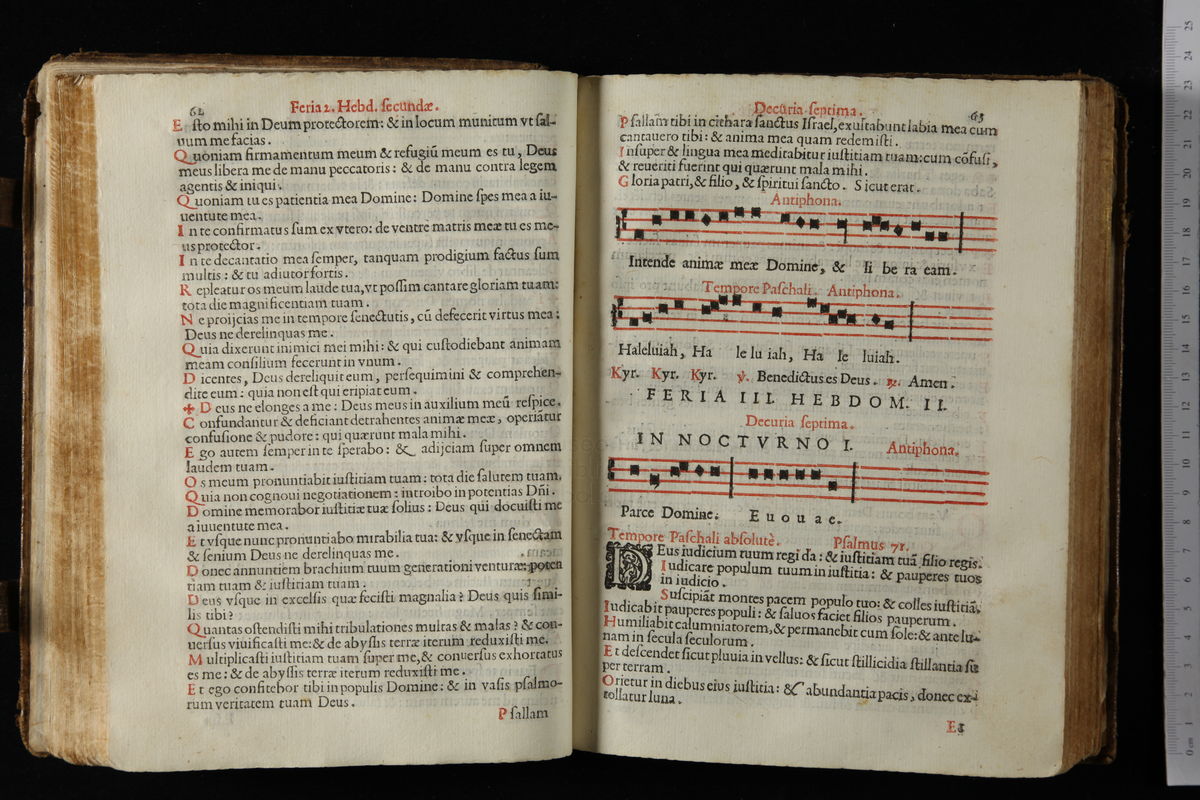 62
Feria 2. Hebd. ſecundæ.
E ſto mihi in Deum protectorem: & in locum munitum vt ſal-
uum me facias.
Q uoniam firmamentum meum & refugiũ meum es tu, Deus
meus libera me de manu peccatoris: & de manu contra legem
agentis & iniqui.
Q uoniam tu es patientia mea Domine: Domine ſpes mea a iu-
uentute mea.
I n te confirmatus ſum ex vtero: de ventre matris meæ tu es me-
us protector.
I n te decantatio mea ſemper, tanquam prodigium factus ſum
multis: & tu adiutor fortis.
R epleatur os meum laude tua, vt poſſim cantare gloriam tuam:
tota die magnificentiam tuam.
N e proijcias me in tempore ſenectutis, cũ defecerit virtus mea:
Deus ne derelinquas me.
Q uia dixerunt inimici mei mihi: & qui cuſtodiebant animam
meam conſilium fecerunt in vnum.
D icentes, Deus dereliquit eum, perſequimini & comprehen-
dite eum: quia non eſt qui eripiat eum.
✠ D eus ne elonges a me: Deus meus in auxilium meũ reſpice.
C onfundantur & deficiant detrahentes animæ meæ, operiãtur
confuſione & pudore: qui quærunt mala mihi.
E go autem ſemper in te ſperabo: & adijciam ſuper omnem
laudem tuam.
O s meum pronuntiabit iuſtitiam tuam: tota die ſalutem tuam.
Q uia non cognoui negotiationem: introibo in potentias Dñi.
D omine memorabor iuſtitiæ tuæ ſolius: Deus qui docuiſti me
a iuuentute mea.
E t vſque nunc pronuntiabo mirabilia tua: & vſque in ſenectam
& ſenium Deus ne derelinquas me.
D onec annuntiem brachium tuum generationi venturæ: poten
tiam tuam & iuſtitiam tuam.
D eus vſque in excelſis quæ feciſti magnalia? Deus quis ſimi-
lis tibi?
Q uantas oſtendiſti mihi tribulationes multas & malas? & con-
uerſus viuificaſti me: & de abyſſis terræ iterum reduxiſti me.
M ultiplicaſti iuſtitiam tuam ſuper me, & conuerſus exhortatus
es me: & de abyſſis terræ iterum reduxiſti me.
E t ego confitebor tibi in populis Domine: & in vaſis pſalmo-
rum veritatem tuam Deus.
P ſallam
Decuria ſeptima.
63
P ſallam tibi in cithara ſanctus Iſrael, exultabunt labia mea cum
cantauero tibi: & anima mea quam redemiſti.
I nſuper & lingua mea meditabitur iuſtitiam tuam: cum cõfuſi,
& reueriti fuerint qui quærunt mala mihi.
G loria patri, & filio, & ſpiritui ſancto. S icut erat.
Antiphona.
Intende animæ meæ Domine, & li be ra eam.
Tempore Paſchali. Antiphona.
Haleluiah, Ha le lu iah, Ha le luiah.
Kyr. Kyr. Kyr. ℣. Benedictus es Deus. ℟. Amen.
FERIA III. HEBDOM. II.
Decuria ſeptima.
IN NOCTVRNO I. Antiphona.
Parce Domine. E u o u a e.
Tempore Paſchali abſolutè. Pſalmus 71.
DEus iudicium tuum regi da: & iuſtitiam tuã filio regis.
Iudicare populum tuum in iuſtitia: & pauperes tuos
in iudicio.
Suſcipiãt montes pacem populo tuo: & colles iuſtitiã.
Iudicabit pauperes populi: & ſaluos faciet filios pauperum.
Humiliabit calumniatorem, & permanebit cum ſole: & ante lu-
nam in ſecula ſeculorum.
Et deſcendet ſicut pluuia in vellus: & ſicut ſtillicidia ſtillantia ſu
per terram.
Orietur in diebus eius iuſtitia: & abundantia pacis, donec ex-
tollatur luna.